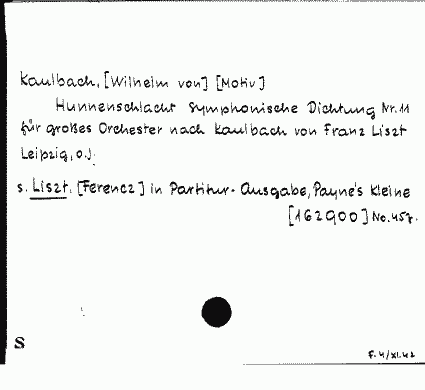 Kaulbach, [Wilhelm von] [Motiv]
Hunnenschlacht Symphonische Dichtung Nr. 11
für großes Orchester nach Kaulbach von Franz Liszt
Leipzig, o.J.
s. Liszt, [Ferencz] in Partitur-Ausgabe, Payne's Kleine
[162900] No. 457.
S
F. 4/XI.42